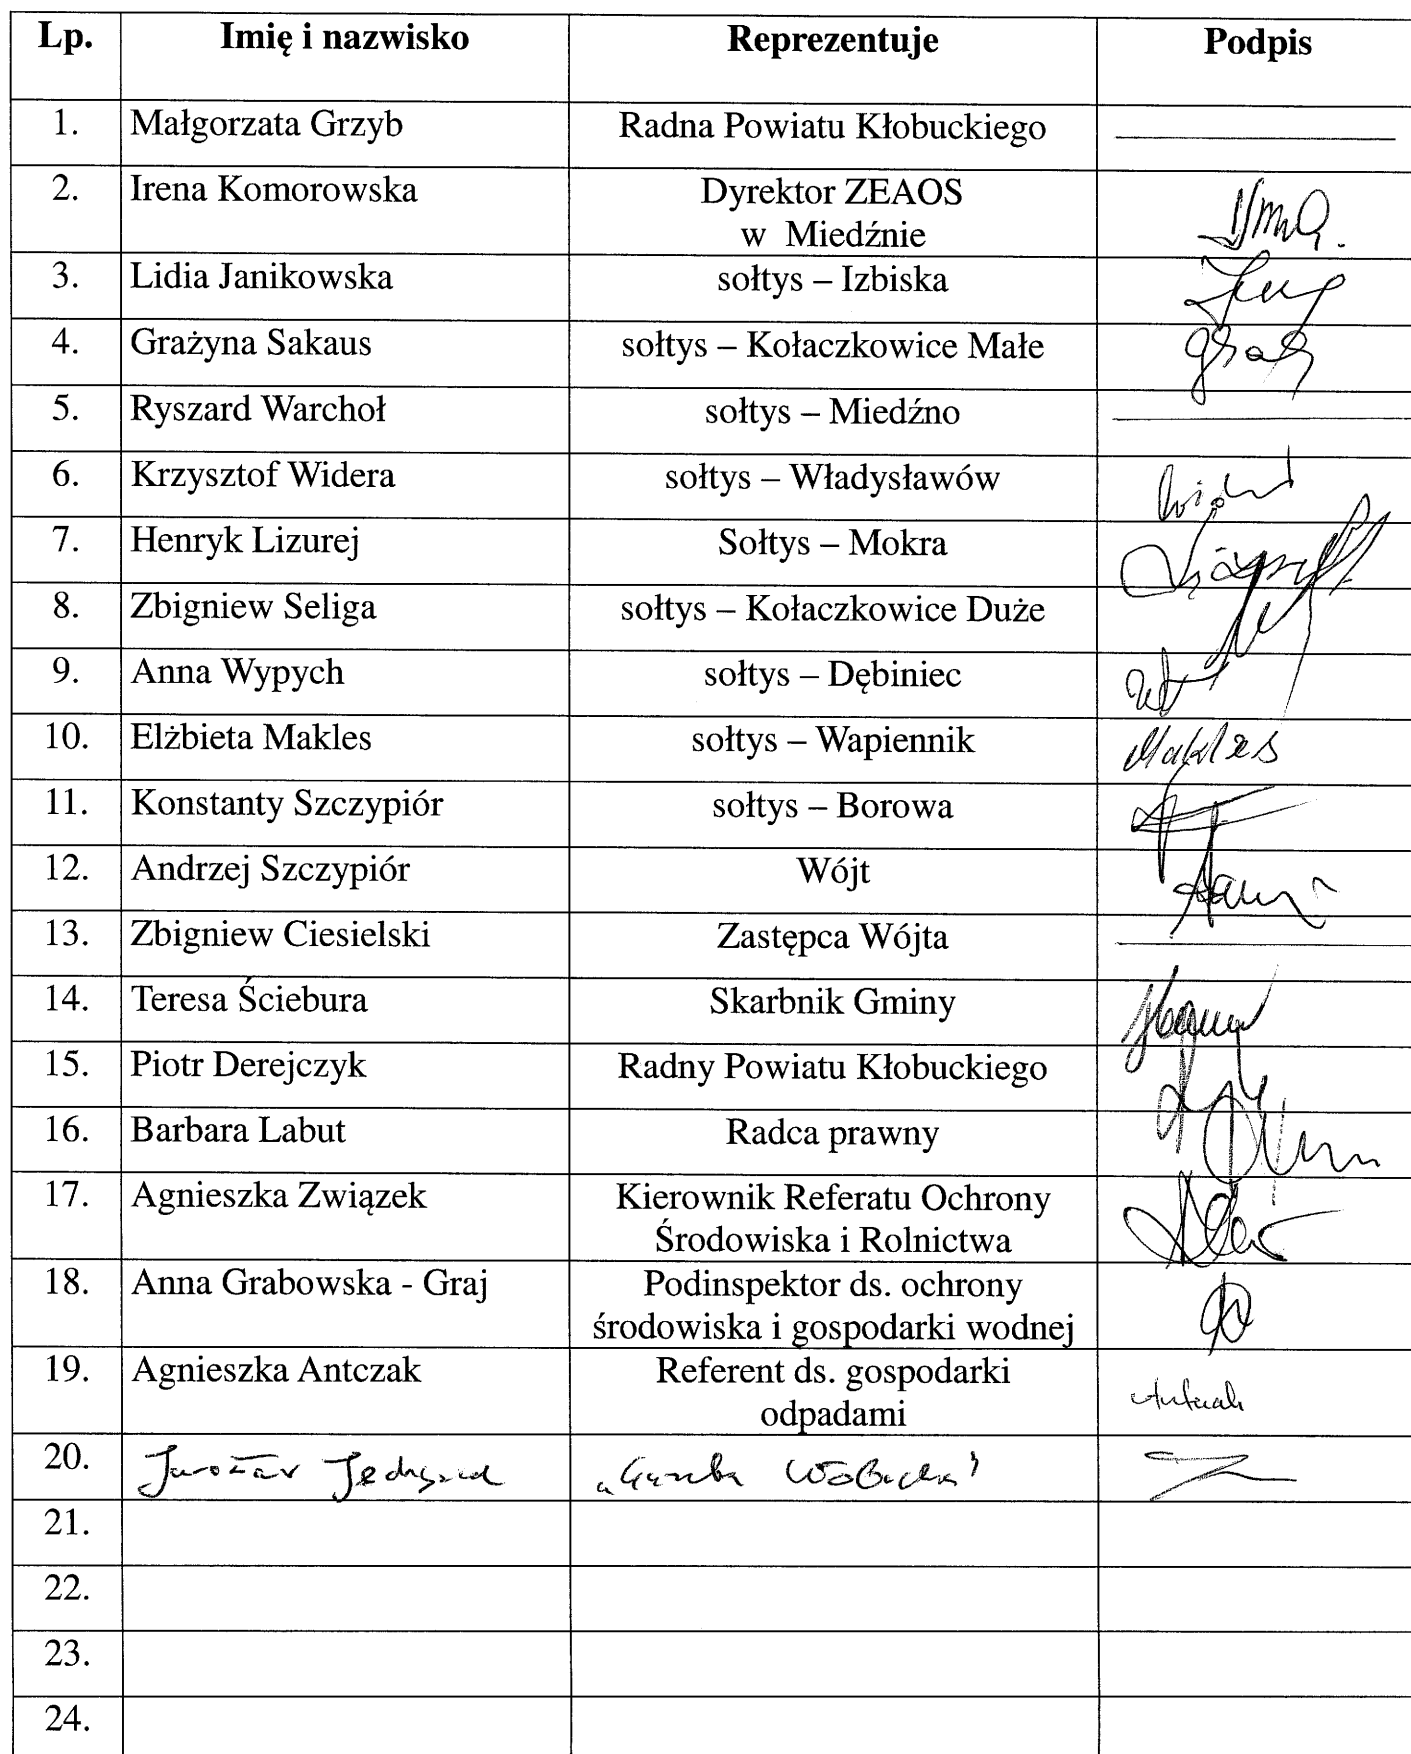 Lp. Imię i nazwisko Reprezentuje Podpis
1. Małgorzata Grzyb Radna Powiatu Kłobuckiego
2. Irena Komorowska Dyrektor ZEAOS
w Miedźnie
3. Lidia Janikowska sołtys – Izbiska
4. Grażyna Sakaus sołtys – Kołaczkowice Małe
5. Ryszard Warchoł sołtys – Miedźno
6. Krzysztof Widera sołtys – Władysławów
7. Henryk Lizurej Sołtys – Mokra
8. Zbigniew Seliga sołtys – Kołaczkowice Duże
9. Anna Wypych sołtys – Dębiniec
10. Elżbieta Makles sołtys – Wapiennik Makles
11. Konstanty Szczypiór sołtys – Borowa
12. Andrzej Szczypiór Wójt
13. Zbigniew Ciesielski Zastępca Wójta
14. Teresa Ściebura Skarbnik Gminy
15. Piotr Derejczyk Radny Powiatu Kłobuckiego
16. Barbara Labut Radca prawny
17. Agnieszka Związek Kierownik Referatu Ochrony
Środowiska i Rolnictwa
18. Anna Grabowska - Graj Podinspektor ds. ochrony
środowiska i gospodarki wodnej
19. Agnieszka Antczak Referent ds. gospodarki
odpadami Antczak
20.
21.
22.
23.
24.